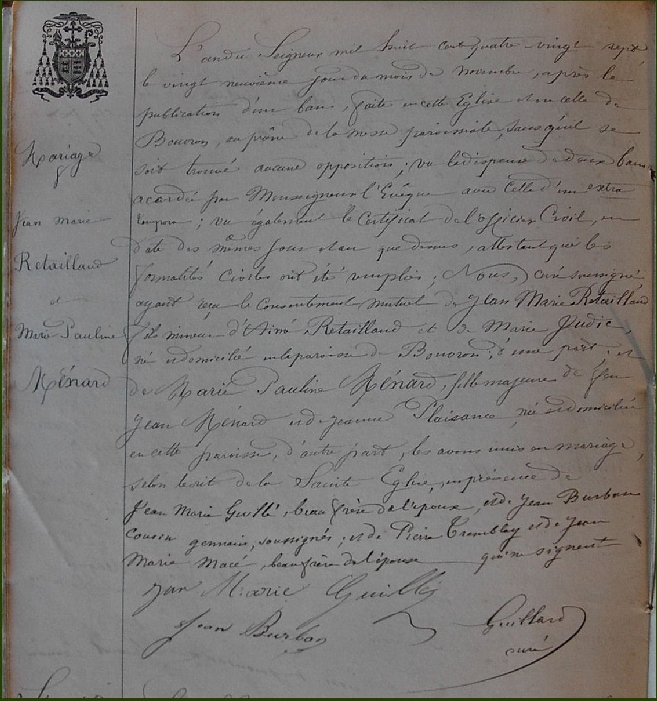 L'an du Seigneur mil huit cent quatre vingt sept
le vingt neuvième jour du mois de novembre, après la
publication d'un ban, faite en cette Eglise et en celle de
Bouvron, au prône de la messe paroissiale, sans qu'il se
soit trouvé aucune opposition; vu la dispense de deux bans
Mariage
accordée par Monseigneur l'Evêque avec celle d'un extra
Jean Marie
tempora; vu également le Certificat de l'officier Civil, en
date des mêmes jour et an que dessus, attestant que les
Retailland
formalités Civiles ont été remplies, Nous, curé soussigné
et
ayant reçu le Consentement mutuel de Jean Marie Retailland
Marie Pauline
fils mineur d'Aimé Retailland et de Marie Judic,
né et domicilié en la paroisse de Bouvron, d'une part; et
Ménard
de Marie Pauline Ménard, fille majeure de feu
Jean Ménard et de Jeanne Plaisance, née et domiciliée
en cette paroisse, d'autre part, les avons unis en mariage,
selon le rit de la Sainte Eglise, en présence de
Jean Marie Guillé, beau frère de l'époux, et de Jean Burban
cousin germain, soussignés; et de Pierre Tremblay et de Jean
Marie Macé, beau frère de l'épouse qui ne signent
Jean Marie Guillé
Guillard
Jean Burban
curé